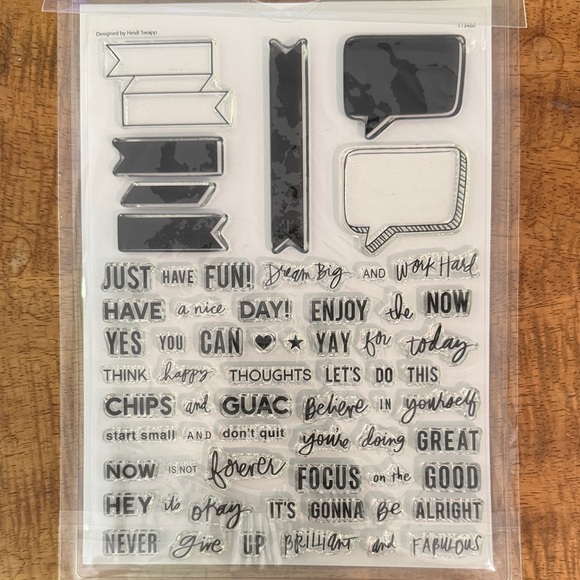 Designed by Heidi Swapp
JUST HAVE FUN! Dream Big AND Work Hard
HAVE a nice DAY! ENJOY the NOW
YES YOU CAN YAY for today
THINK happy THOUGHTS LET'S DO THIS
CHIPS and GUAC Believe IN yourself
start small AND don't quit you're doing GREAT
NOW IS NOT forever FOCUS on the GOOD
HEY it's okay IT'S GONNA Be ALRIGHT
NEVER give UP BRILLIANT and FABULOUS